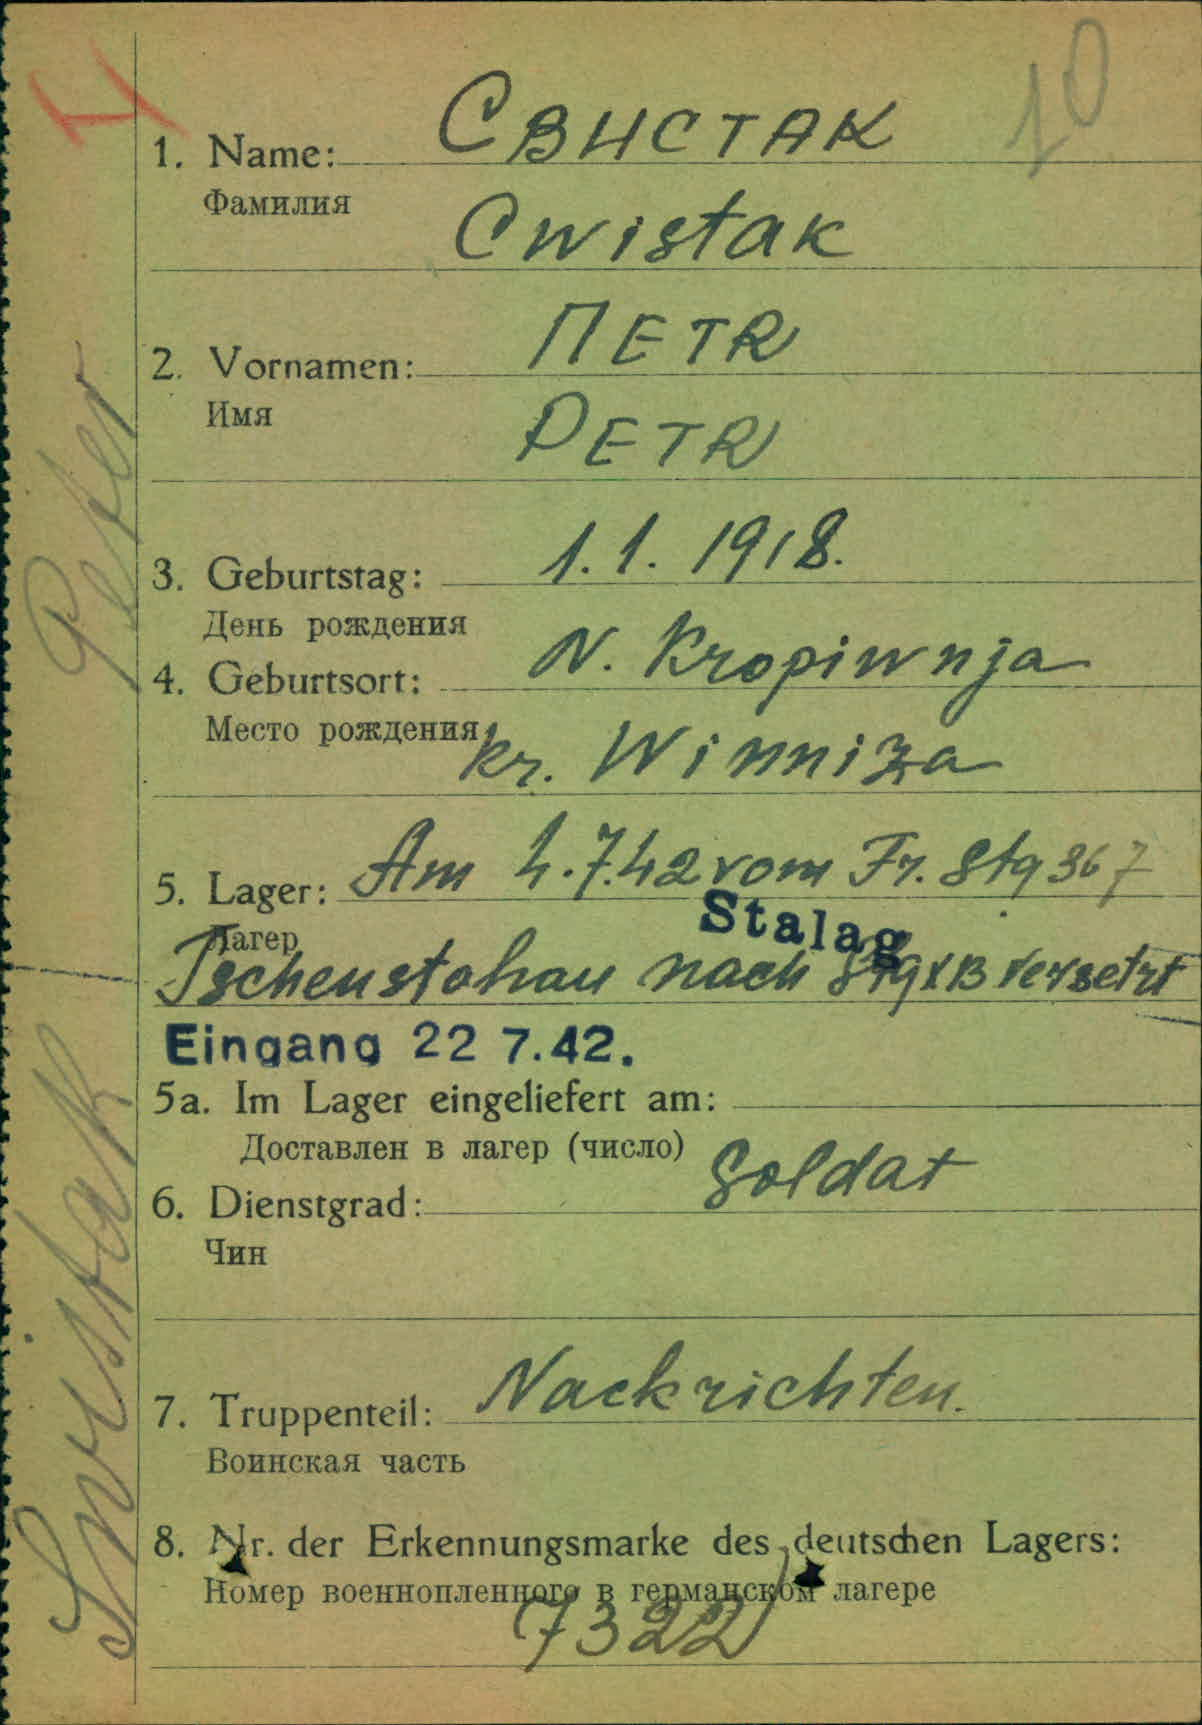 10
1. Name: СВИСТАК
Фамилия
Cwistak
2. Vornamen: ПЕТR
Имя
PETR
3. Geburtstag: 1.1. 1918.
День рождения
4. Geburtsort: N. Kropiwnja
Место рождения kr. Winniza
5. Lager: Am 4.7.42 vom Fr. Stg 367
Лагер
Stalag
Tschenstohau nach Stg XB versetzt
Eingang 22 7.42.
5a. Im Lager eingeliefert am:
Доставлен в лагер (число)
6. Dienstgrad: Soldat
Чин
7. Truppenteil: Nachrichten.
Воинская часть
8. Nr. der Erkennungsmarke des deutschen Lagers:
Номер военнопленного в германском лагере
7322
Swistak Peter